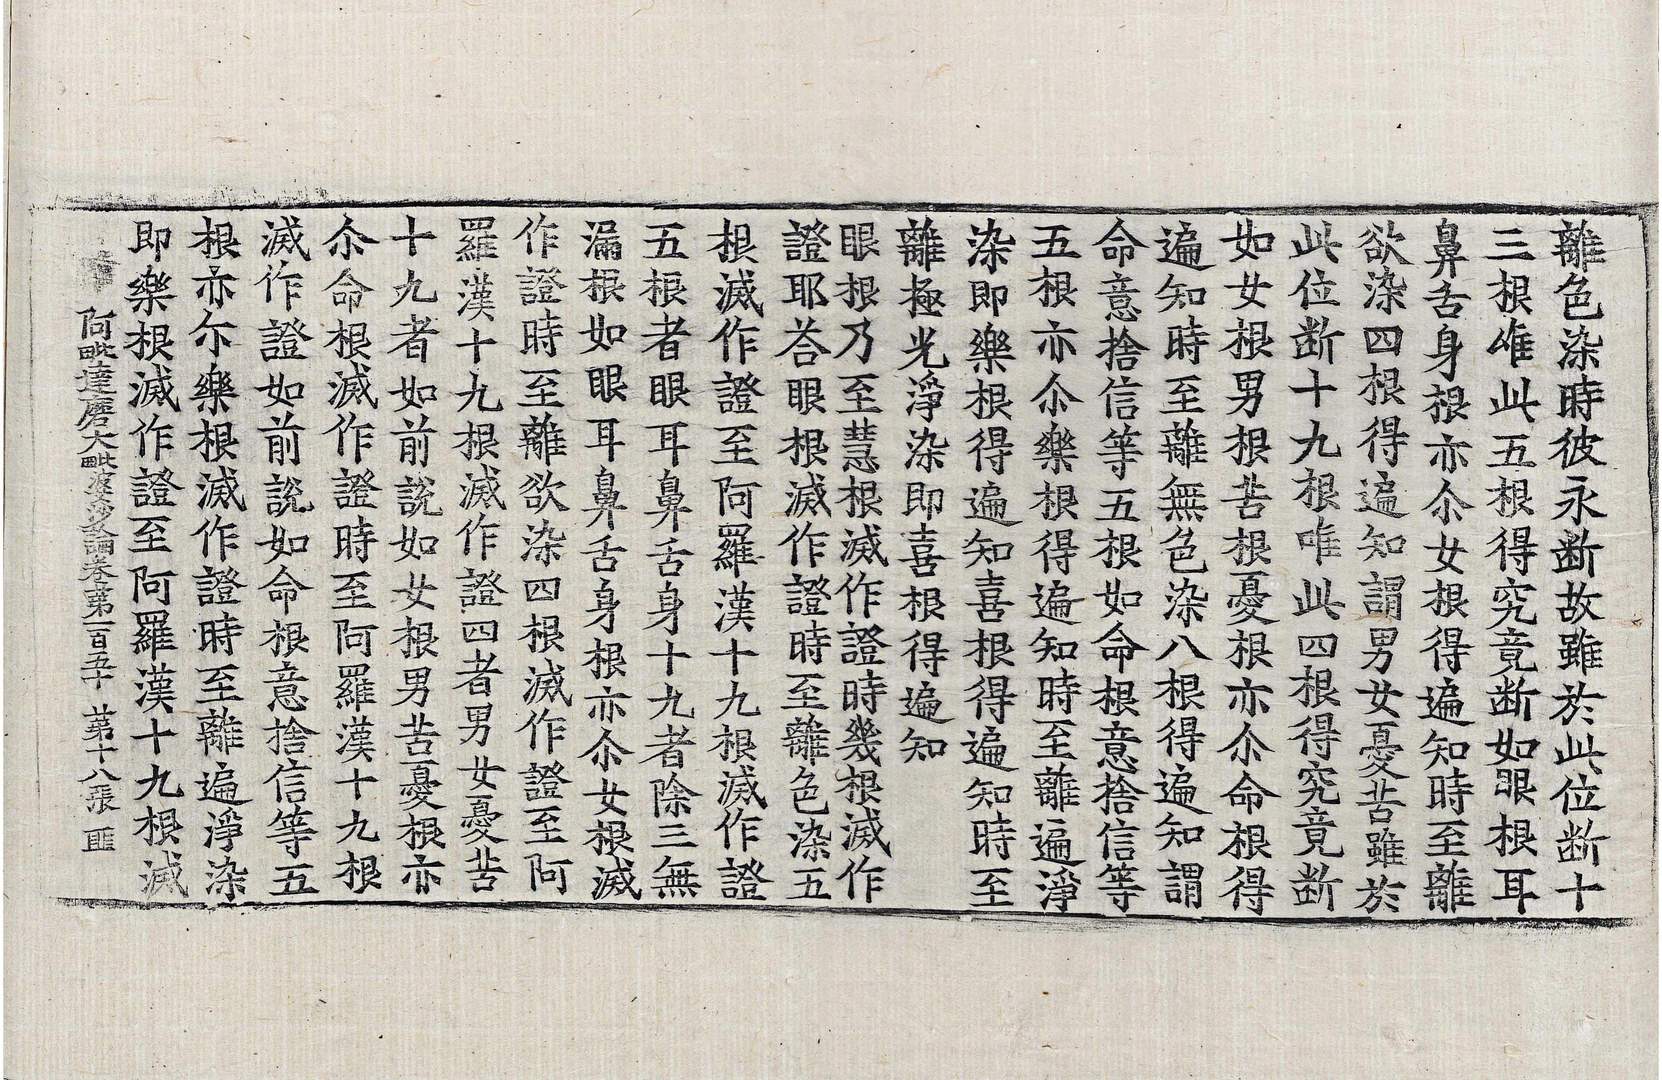 離色染時彼永断故雖於此位断十
三根唯此五根得究竟断如眼根耳
鼻舌身根亦尒女根得遍知時至離
欲染四根得遍知謂男女憂苦雖於
此位断十九根唯此四根得究竟断
如女根男根苦根憂根亦尒命根得
遍知時至離無色染八根得遍知謂
命意捨信等五根如命根意捨信等
五根亦尒樂根得遍知時至離遍淨
染即樂根得遍知喜根得遍知時至
離極光淨染即喜根得遍知
眼根乃至慧根滅作證時幾根滅作
證耶荅眼根滅作證時至離色染五
根滅作證至阿羅漢十九根滅作證
五根者眼耳鼻舌身十九者除三無
漏根如眼耳鼻舌身根亦尒女根滅
作證時至離欲染四根滅作證至阿
羅漢十九根滅作證四者男女憂苦
十九者如前說如女根男苦憂根亦
尒命根滅作證時至阿羅漢十九根
滅作證如前說如命根意捨信等五
根亦尒樂根滅作證時至離遍淨染
即樂根滅作證至阿羅漢十九根滅
阿毗達磨大毗婆沙論卷第一百五十 第十八張 匪